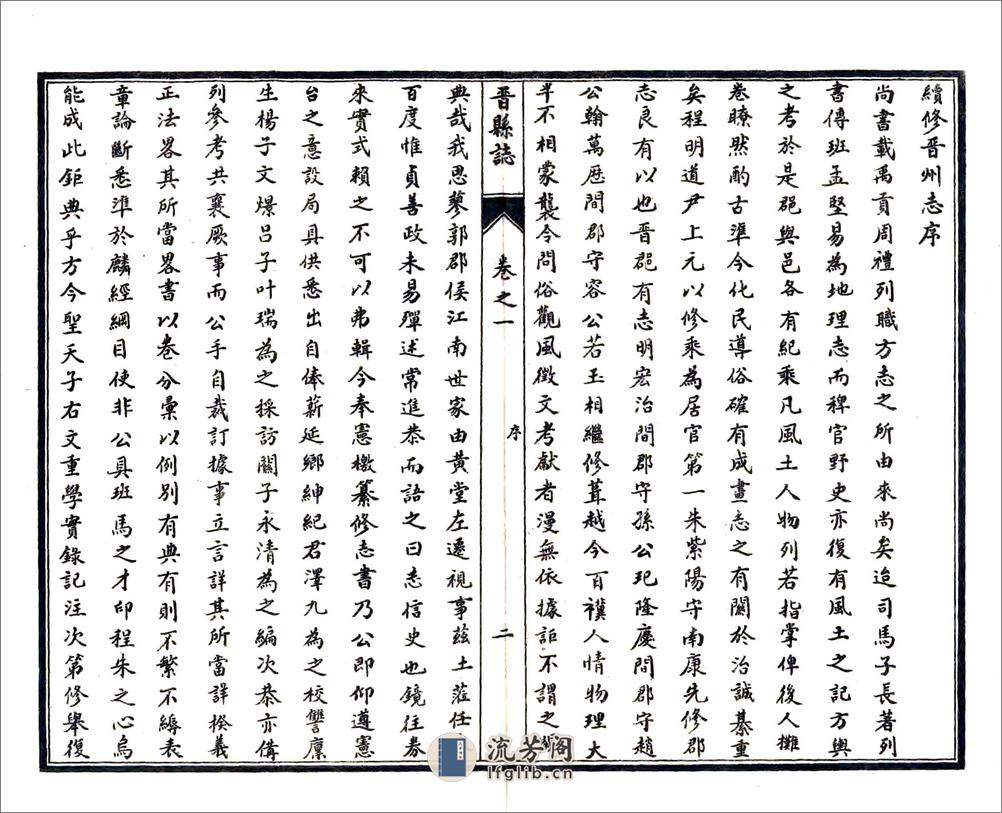 續修晋州志序
尚書載禹貢周禮列職方志之所由來尚矣迨司馬子長著列
書傳班孟堅易為地理志而稗官野史亦復有風土之記方輿
之考於是郡與邑各有紀乘凡風土人物列若指掌俾後人攤
卷瞭然酌古準今化民導俗確有成畫志之有關於治誠綦重
矣程明道尹上元以修乘為居官第一朱紫陽守南康先修郡
志良有以也晋郡有志明宏治間郡守孫公玘隆慶間郡守趙
公翰萬歷間郡守容公若玉相繼修葺越今百禩人情物理大
半不相蒙襲今問俗觀風徵文考獻者漫無依據詎不謂之
晋縣誌
卷之一
序
二
典哉我思蓼郭郡侯江南世家由黄堂左遷視事茲土蒞任
百度惟貞善政未易殫述常進恭而語之曰志信史也鏡往券
來實式賴之不可以弗輯今奉憲檄纂修志書乃公即仰遵憲
台之意設局具供悉出自俸薪延鄉紳紀君澤九為之校讐廩
生楊子文燝吕子叶瑞為之採訪關子永清為之編次恭亦備
列參考共襄厥事而公手自裁訂據事立言詳其所當詳揆義
正法畧其所當畧書以卷分彙以例別有典有則不繁不縟表
章論斷悉準於麟經綱目使非公具班馬之才印程朱之心烏
能成此鉅典乎方今聖天子右文重學實錄記注次第修舉復
流芳阁
lfglib.cn